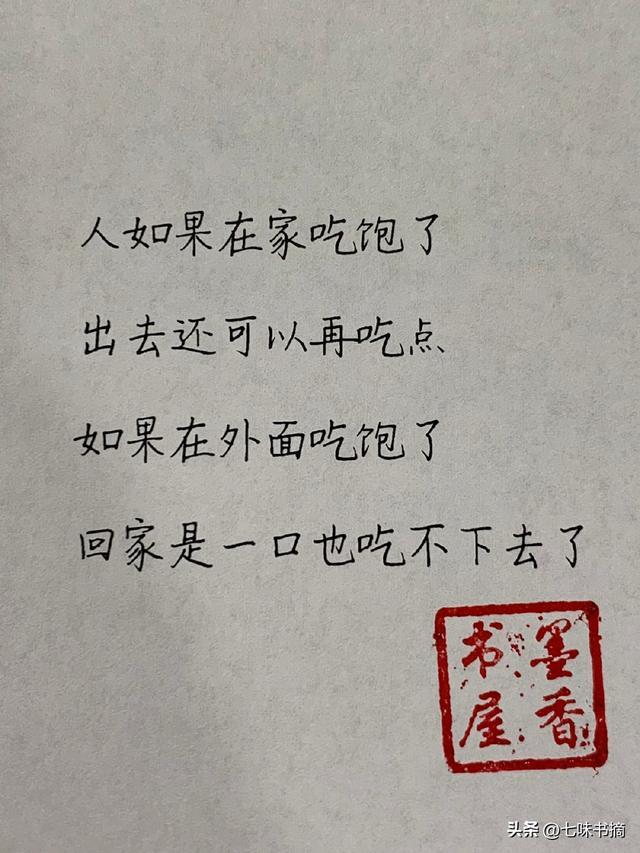 人如果在家吃饱了
出去还可以再吃点
如果在外面吃饱了
回家是一口也吃不下去了
墨香
书屋
头条 @七味书摘